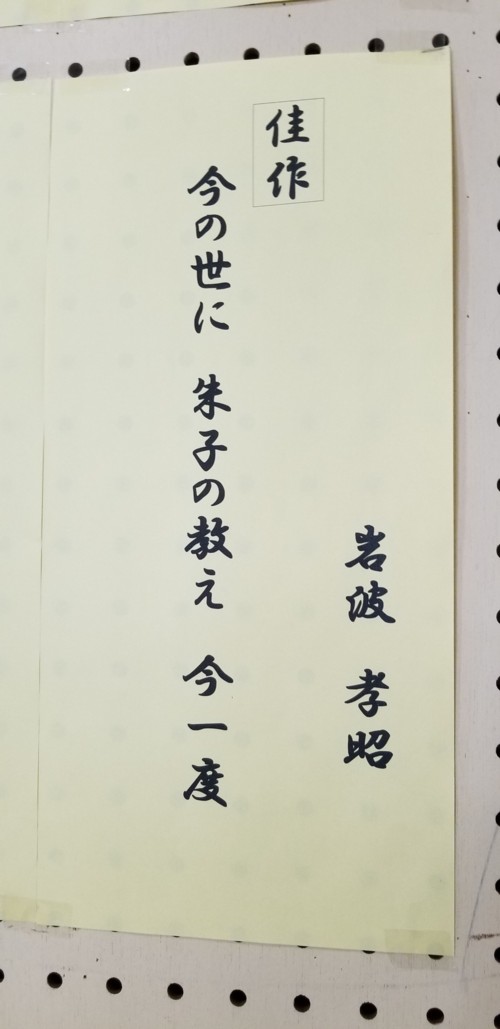 岩波 孝昭
佳作
今の世に 朱子の教え 今一度